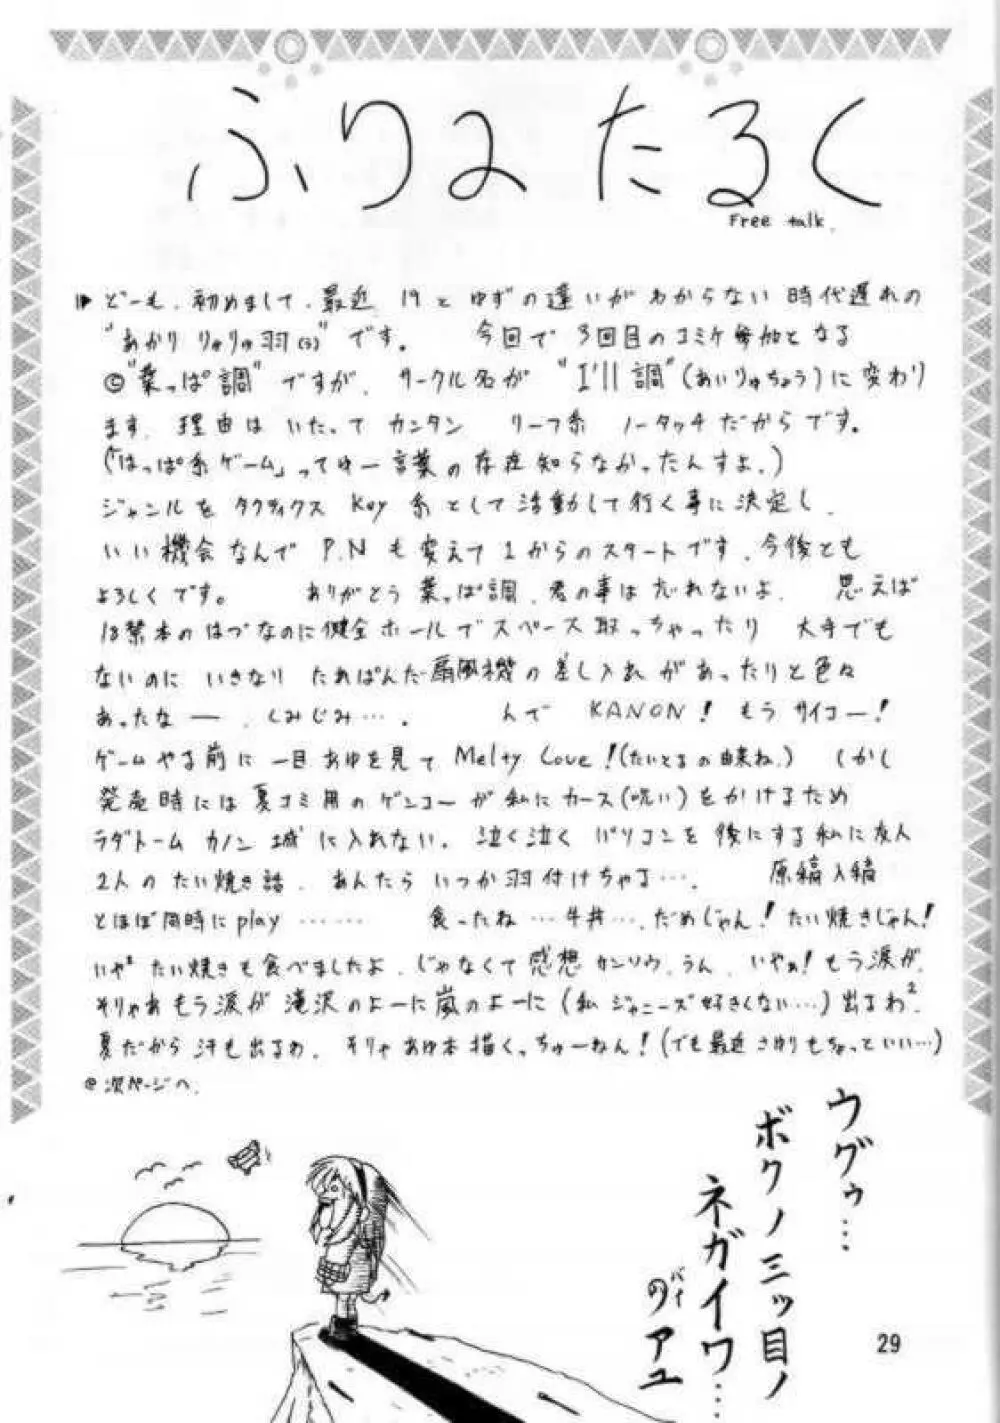 ふりーたるく
Free talk.
どーも、初めまして、最近 19とゆずの違いがわからない時代遅れの
"あかりりゅりゅ羽(3)"です。 今回で3回目のコミケ参加となる
©"葉っぱ調"ですが、サークル名が "I'll調"(あいりゅちょう)に変わり
ます。理由はいたってカンタン リーフ系 ノータッチだからです。
(「はっぱ系ゲーム」ってゆー言葉の存在知らなかったんすよ。)
ジャンルを タクティクス Key系として活動して行く事に決定し、
いい機会なんで P.Nも変えて1からのスタートです、今後とも
よろしくです。 ありがとう葉っぱ調、君の事は忘れないよ、 思えば
18禁本のはづなのに健全ホールでスペース取っちゃったり 大手でも
ないのに いきなり たれぱんだ扇風機の差し入れがあったりと色々
あったなー、しみじみ…。 んで KANON! もうサイコー!
ゲームやる前に一目あゆを見て Melty Love!(たいとるの由来ね。) しかし
発売時には夏コミ用のゲンコーが私にカース(呪い)をかけるため
ラダトーム カノン城に入れない。泣く泣く パソコンを後にする私に友人
2人のたい焼き話、あんたらいつか羽付けちゃる…。 原稿入稿
とほぼ同時にplay ……… 食ったね…牛丼…、だめじゃん!たい焼きじゃん!
いや² たい焼きも食べましたよ、じゃなくて感想カンソウ、うん、いやぁ!もう涙が、
そりゃあもう涙が滝沢のよーに嵐のよーに(私ジャニーズ好きくない…)出るわ²
夏だから汗も出るわ、そりゃあゆ本描くっちゅーねん!(でも最近さゆりもちょっといい…)
@次ページへ。
ウグゥ…
ボクノ三ツ目ノ
ネガイワ…
バイ
のアユ
29